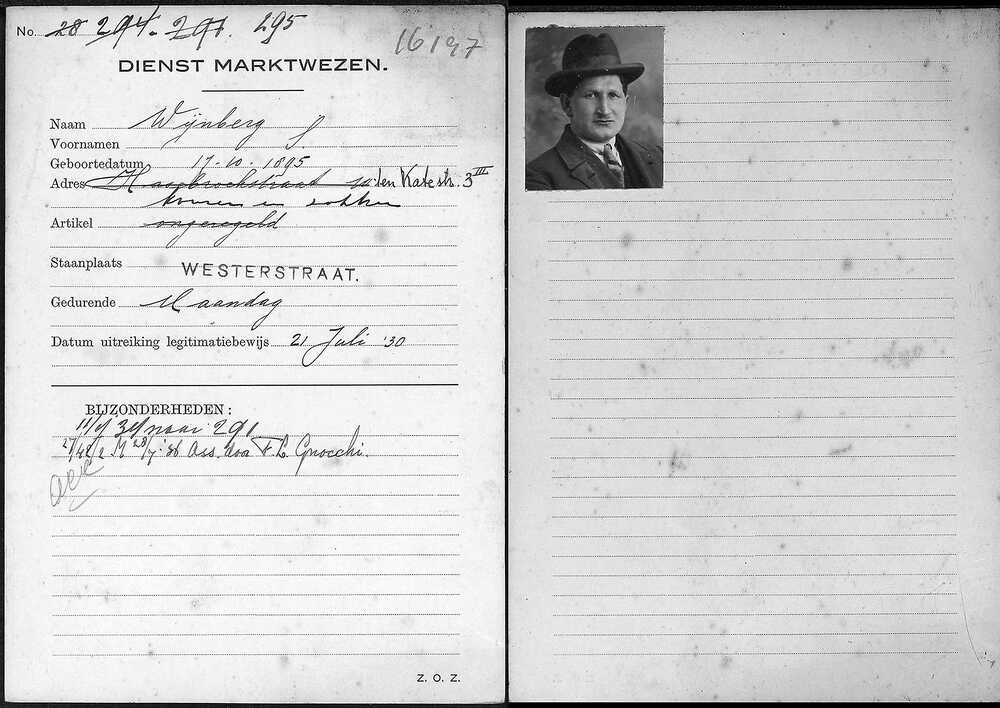 No. 28 294. 291. 295
16197
DIENST MARKTWEZEN.
Naam Wijnberg S
Voornamen
Geboortedatum 17-10-1895
Adres ten Katestr. 3 III
en sokken
Artikel ongeregeld
Staanplaats WESTERSTRAAT.
Gedurende Maandag
Datum uitreiking legitimatiebewijs 21 Juli '30
BIJZONDERHEDEN:
naar 291
Ass. dva F. L. Gnocchi.
Z. O. Z.